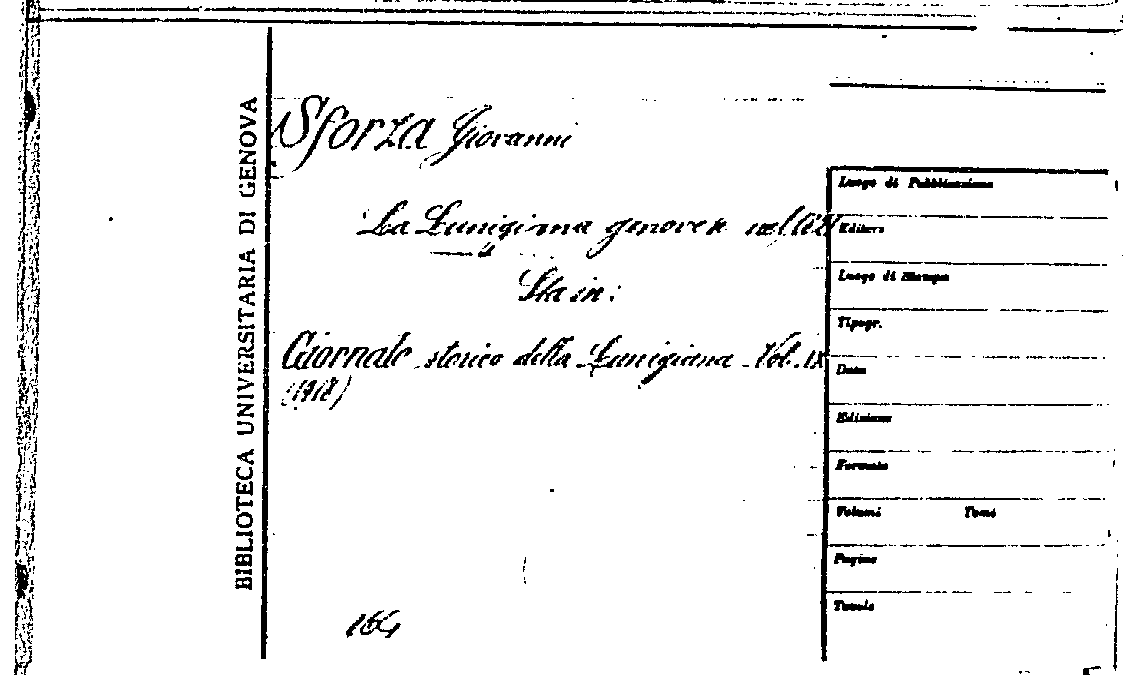 BIBLIOTECA UNIVERSITARIA DI GENOVA
Sforza Giovanni
La Lunigiana genovese nel
Sta in:
Giornale storico della Lunigiana Vol. IX
(1918)
164
Luogo di Pubblicazione
Editore
Luogo di Stampa
Tipogr.
Data
Edizione
Formato
Volumi Tomi
Pagine
Tavole